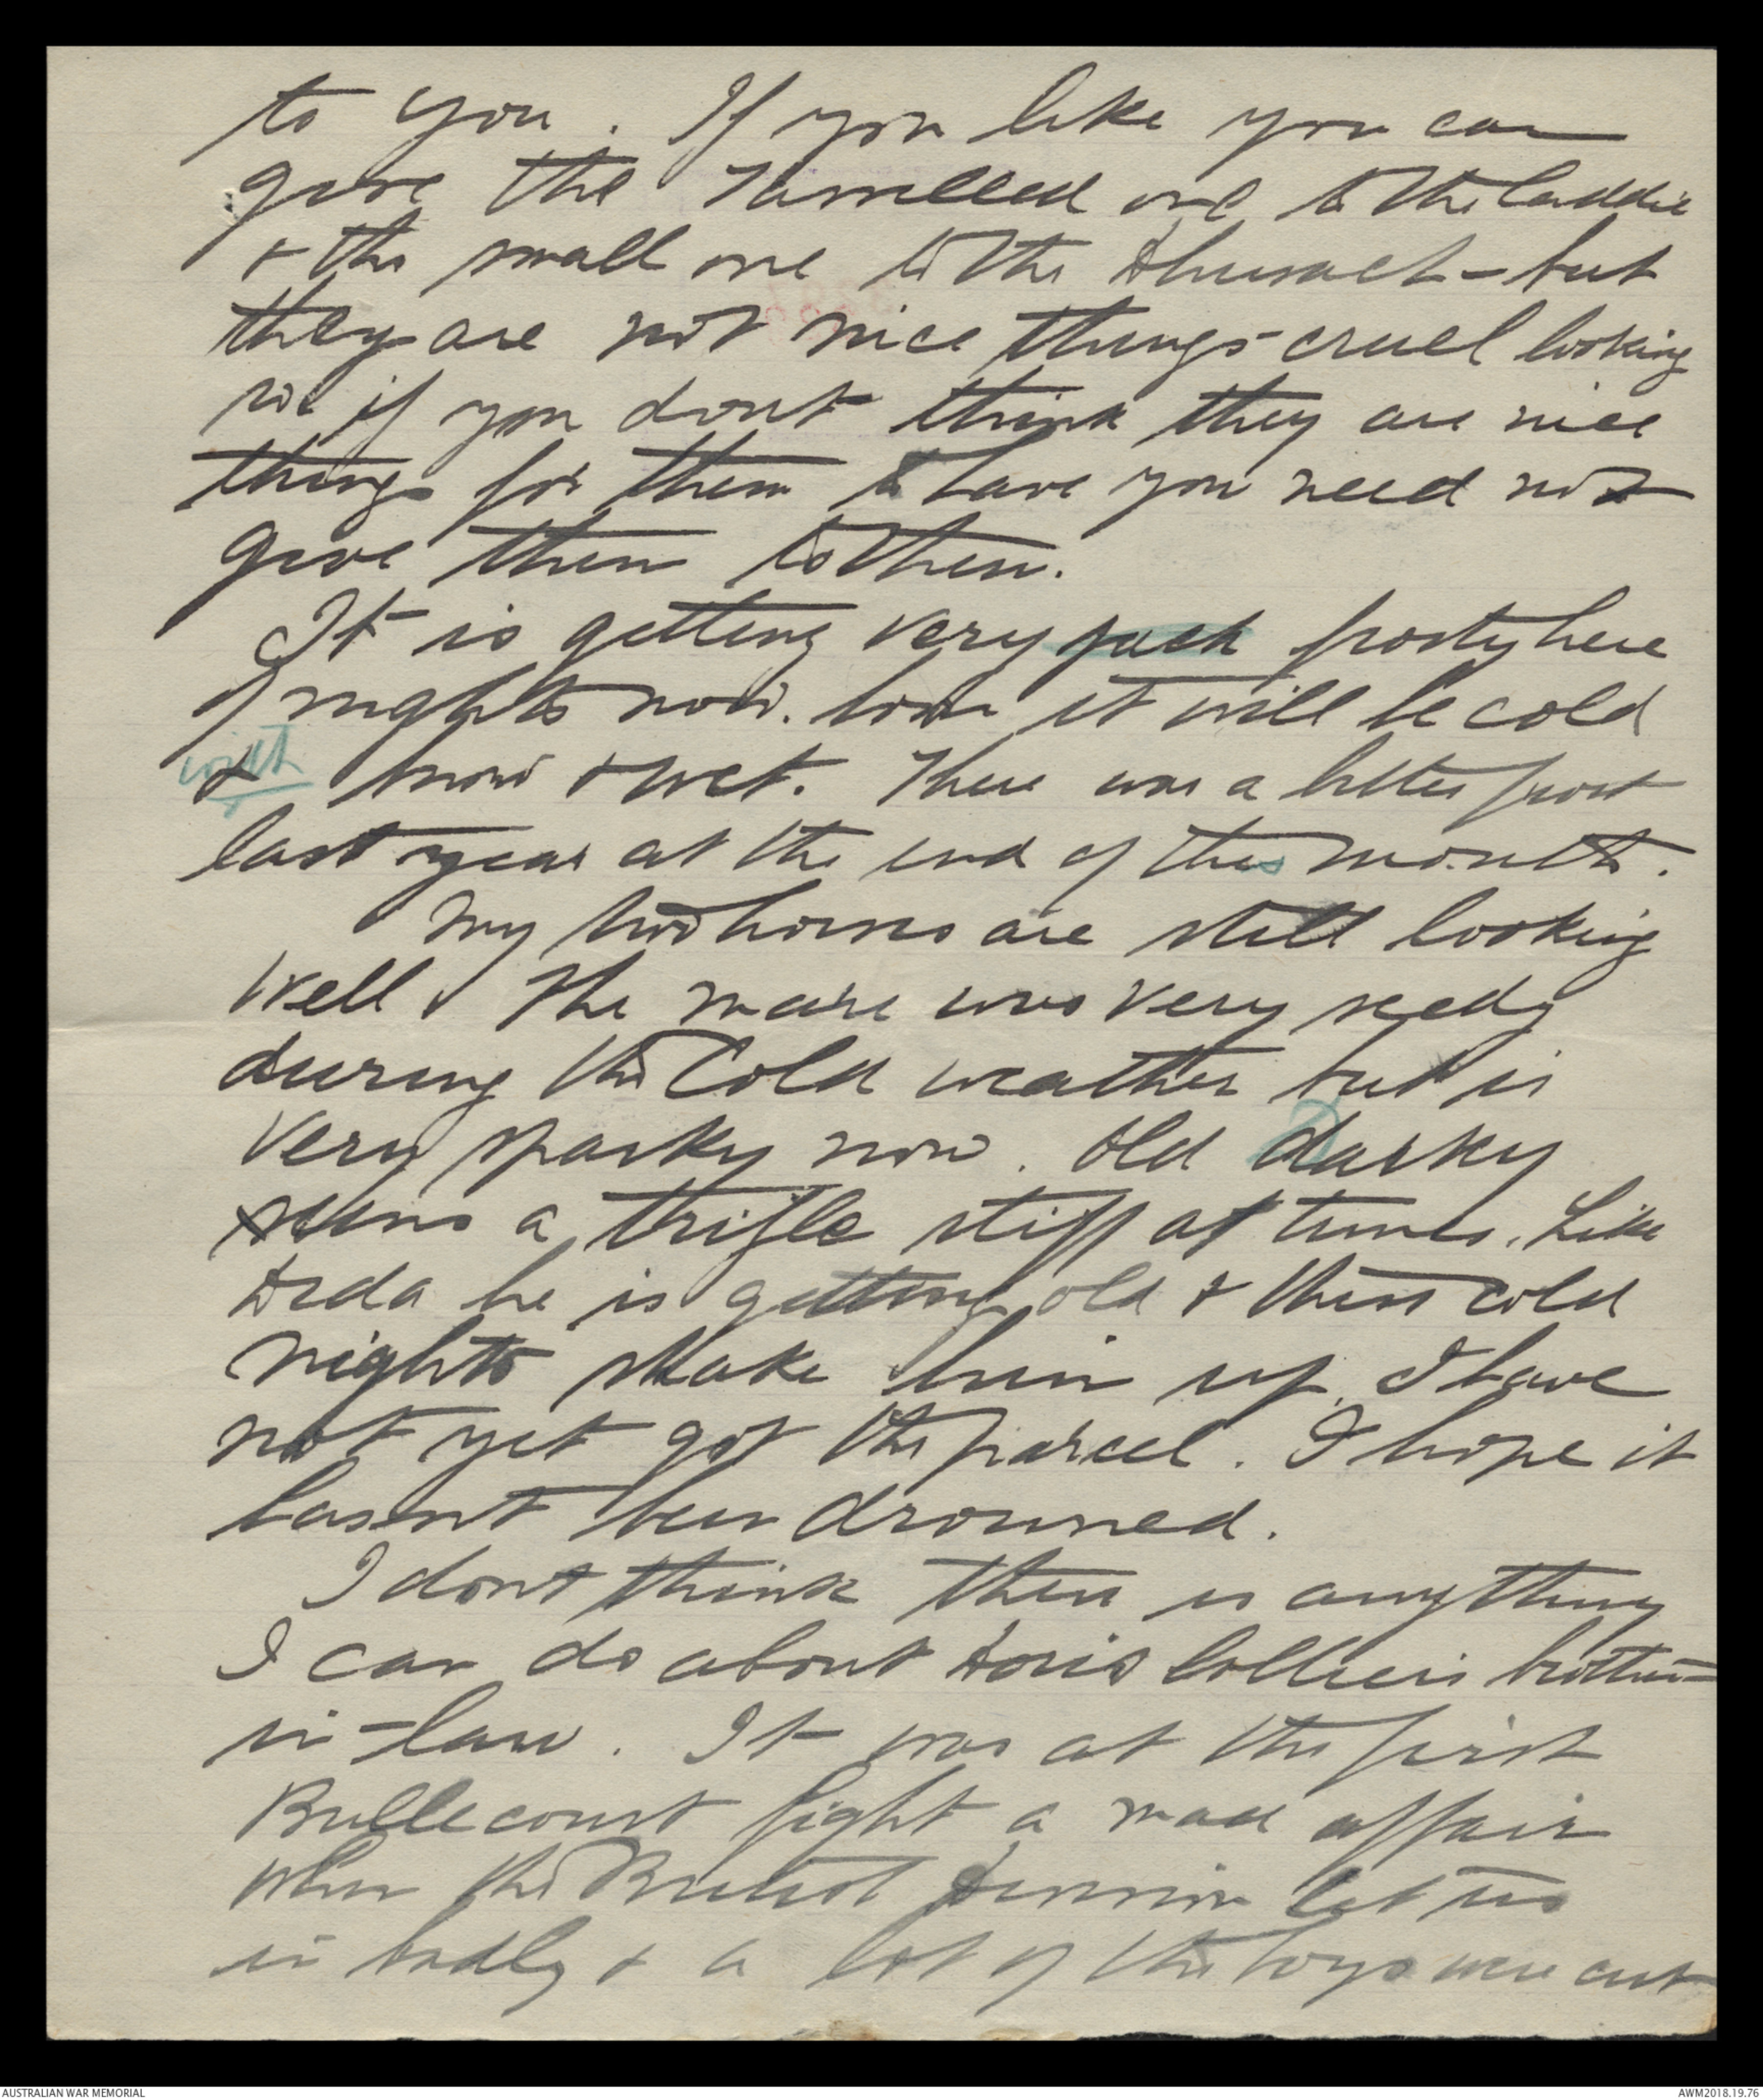 to you. If you like you can
give the tasselled one to the laddie
& the small one to the - but
they are not nice things - cruel looking
so if you dont think they are nice
things for them to have you need not
give them to them.
It is getting very frosty here
of nights now. Soon it will be cold
with
& snow & wet. There was a bitter frost
last year at the end of this month.
My two horses are still looking
well & the mare was very seedy
during the Cold weather but is
very sparky now. Old darky
seems a trifle stiff at times. Like
Dida he is getting old & these cold
nights shake him up. I have
not yet got the parcel. I hope it
hasnt been drowned.
I dont think there is anything
I can do about Doris brother-
in-law. It was at the first
Bullecourt fight a mad affair
when the British Division let us
in badly & a lot of the boys were cut
AUSTRALIAN WAR MEMORIAL
AWM2018.19.76